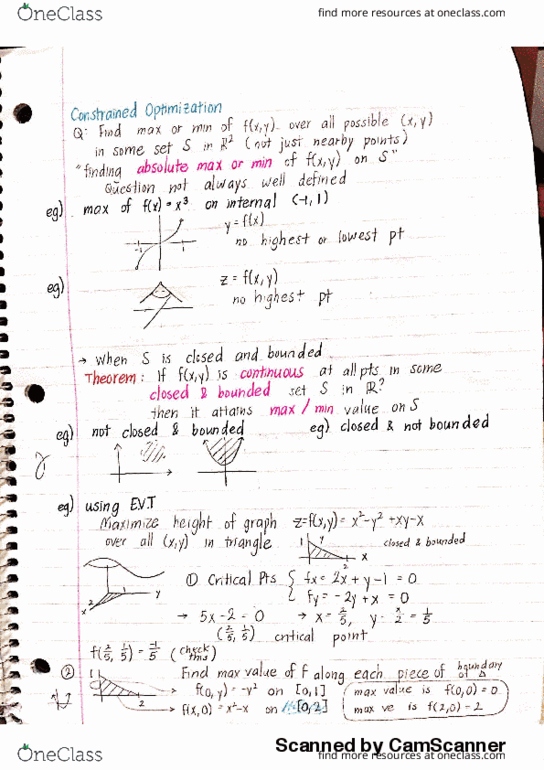 OneClass
find more resources at oneclass.com
Constrained Optimization
Q: Find max or min of f(x,y) over all possible (x,y)
in some set S in ℝ² (not just nearby points)
"finding absolute max or min of f(x,y) on S"
Question not always well defined
eg) max of f(x) = x³ on internal (-1, 1)
y = f(x)
-1 1
no highest or lowest pt
eg) z = f(x,y)
no highest pt
→ when S is closed and bounded
Theorem: If f(x,y) is continuous at all pts in some
closed & bounded set S in ℝ²
then it attains max / min value on S
eg) not closed & bounded eg) closed & not bounded
eg) using EVT
Maximize height of graph z=f(x,y) = x²-y²+xy-x
over all (x,y) in triangle
1 y
x
2
closed & bounded
① Critical Pts { fx = 2x + y - 1 = 0
fy = -2y + x = 0
1 y
2
x
→ 5x-2 = 0 → x = 2/5, y = x/2 = 1/5
(2/5, 1/5) critical point
f(2/5, 1/5) = -1/5 (check this)
② Find max value of f along each piece of boundary of Δ
1
2
f(0,y) = -y² on [0,1]
f(x,0) = x²-x on [0,2]
max value is f(0,0) = 0
max ve is f(2,0) = 2
Scanned by CamScanner
OneClass
find more resources at oneclass.com